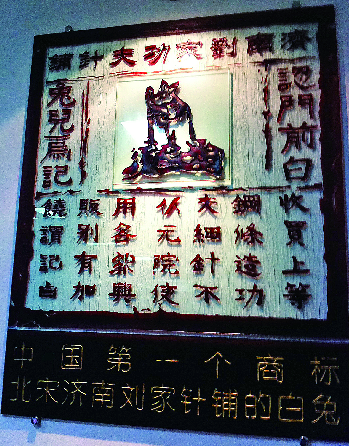 濟南劉家功夫針鋪
認門前白
兔兒爲記
收買上等
鋼條造功
夫細針不
院使
用興
販別有加
饒謂記白
中国第一个商标
北宋济南刘家针铺的白兔